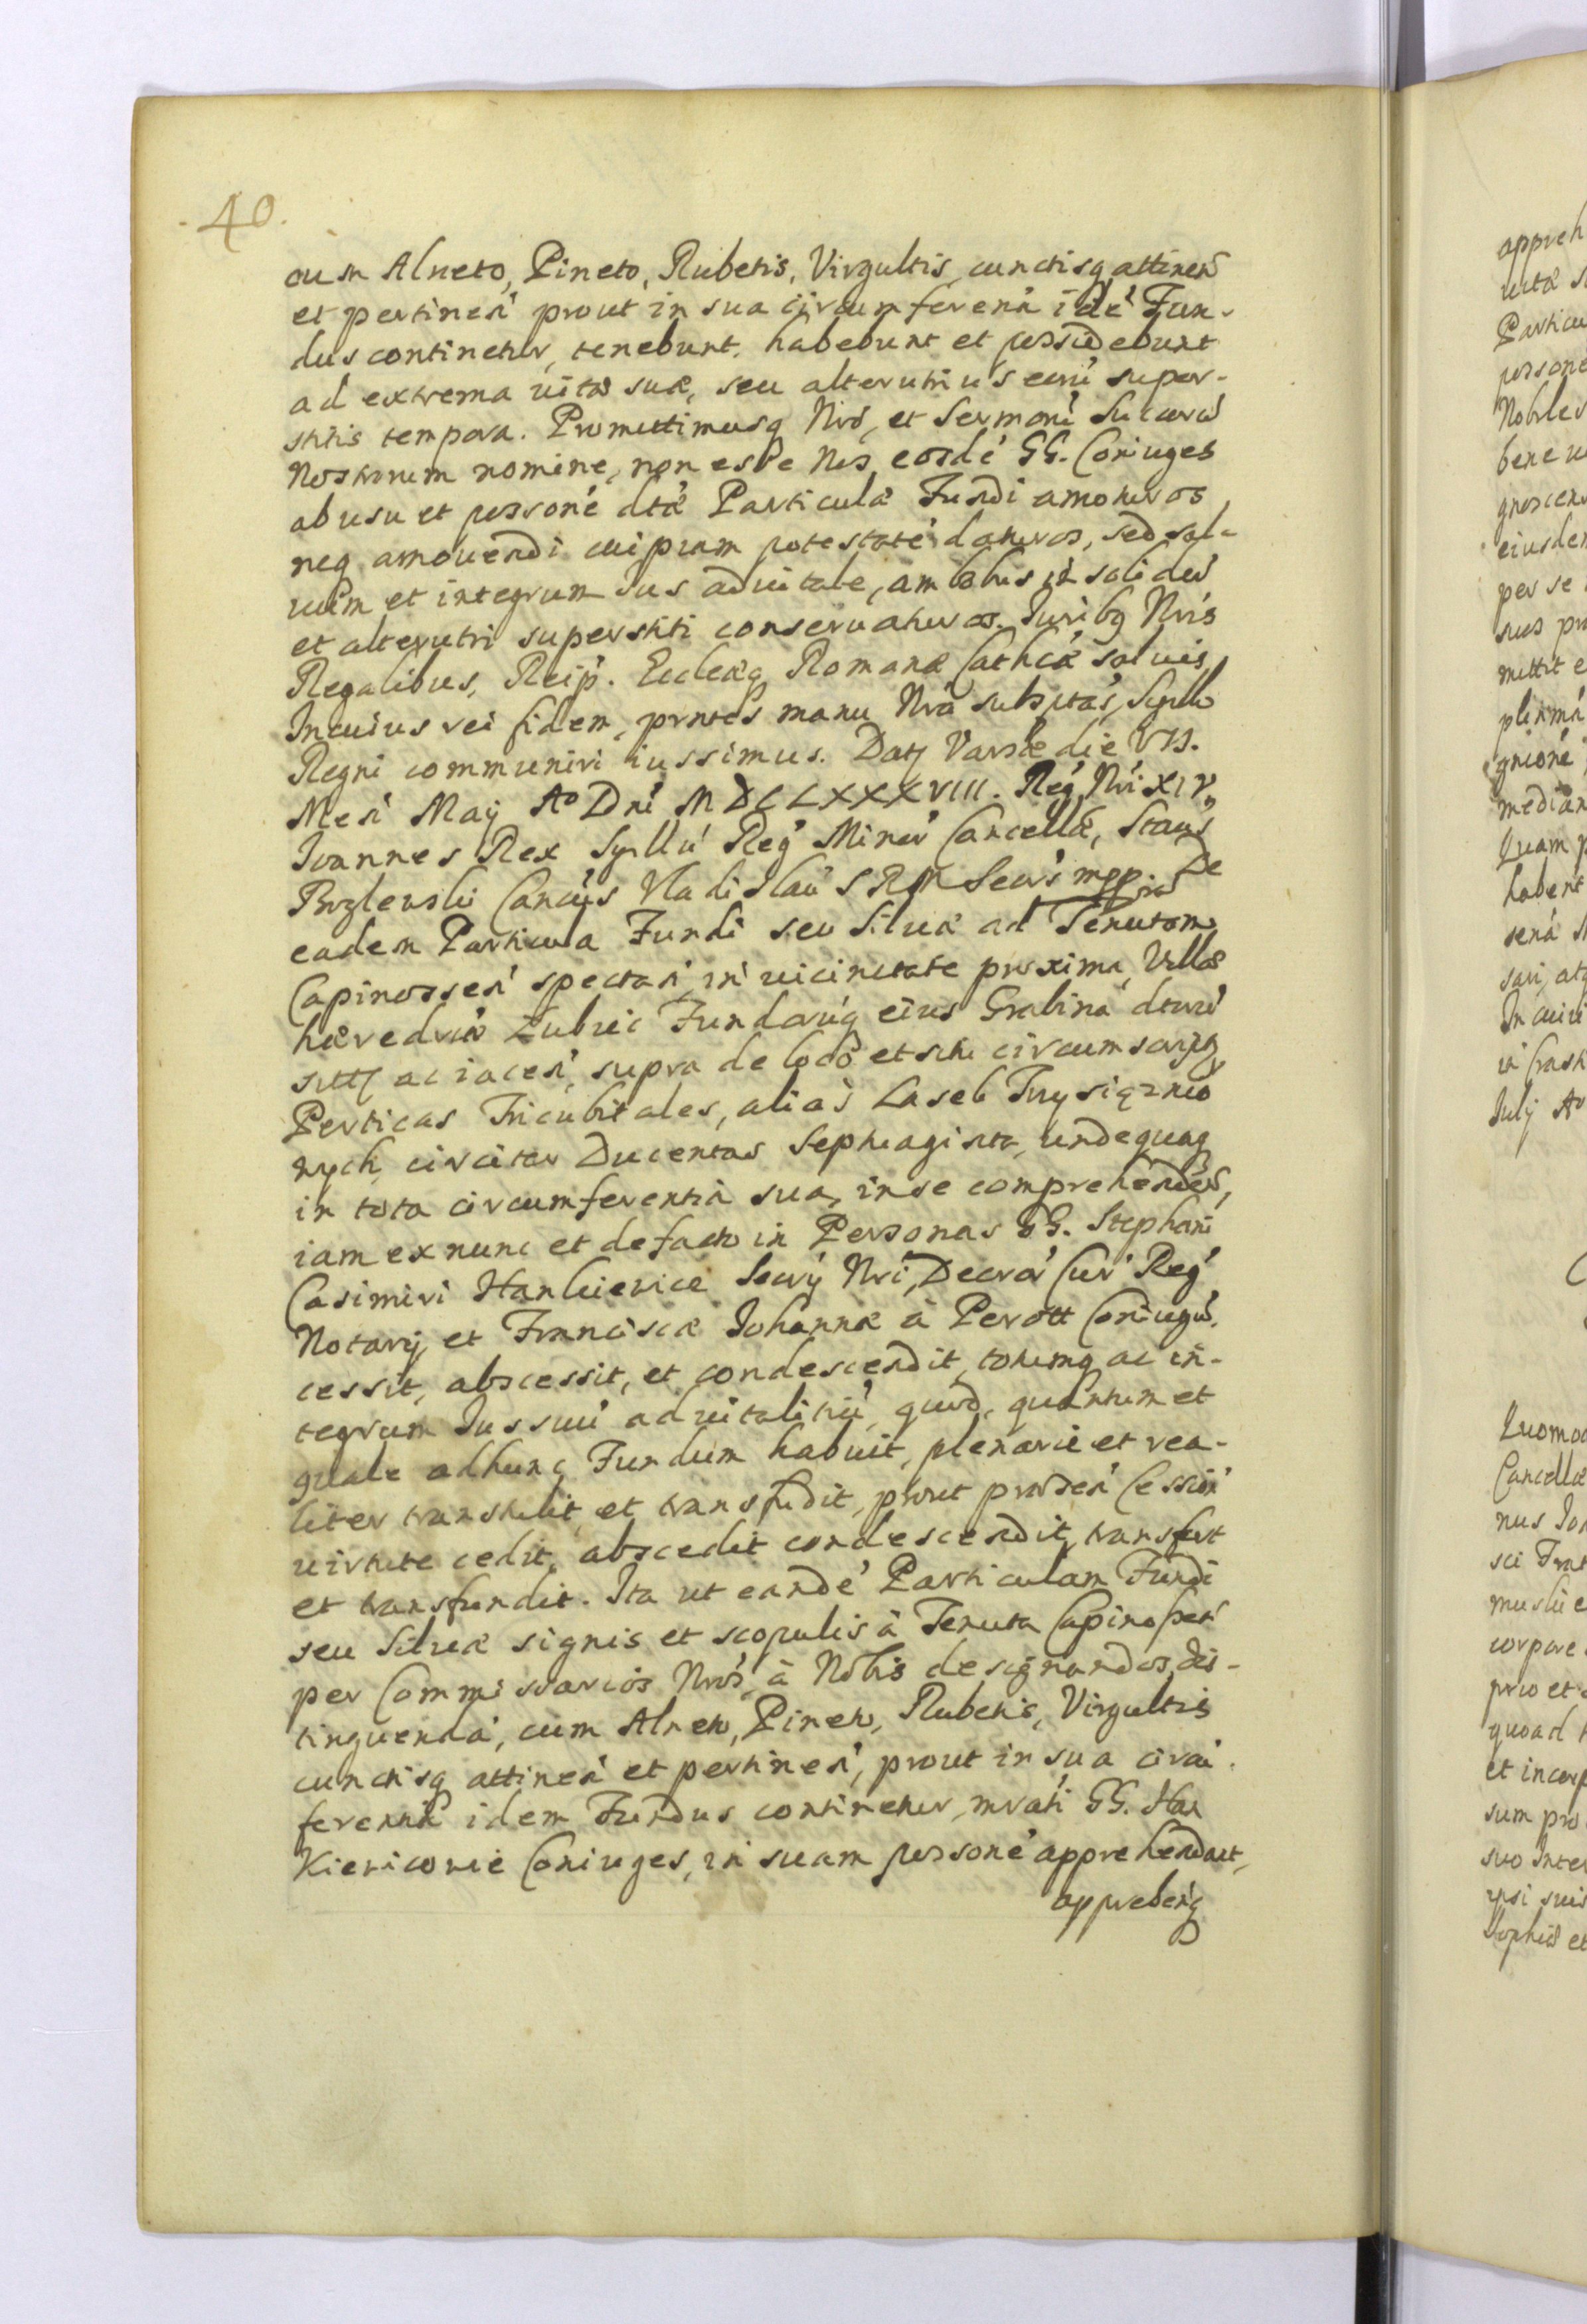 40.
cum Alneto, Pineto, Rubetis, Virgultis, cunctisq attinen
et pertinen prout in sua circumferen idé Fun-
dus continetur, tenebunt, habebunt et possidebunt
ad extrema uitæ suæ, seu alterutrius eorú super-
stitis tempora. Promittimusq Nro, et Sermorú Succorú
Nostrorum nomine, non esse Nos, eosdé GG. Coniuges
ab usu et possoné dtæ Particulæ Fundi amoturos
neq amouendi cuipiam potestaté daturos, sed sal-
uum et integrum Ius aduitale, ambobus in solidú
et alterutri superstiti conseruaturos. Iuribq Nris
Regalibus, Reip. Ecclæq Romanæ Cathcæ saluis,
In cuius rei fidem, prntes manu Nrâ subscrtas, Sigillo
Regni communiri iussimus. Dat Varsæ die VII.
Men Maij Ao Dni MDCLXXXVIII. Reg Nri XIV.
Ioannes Rex Sigillú Reg Minus Cancellæ, Staus
Vladislau SRM Secrs mpp. De
eadem Particula Fundi seu Siluæ ad Tenutam
Capinossen spectan, in uicinitate proxima, Villæ
hæredriæ Zubric Fundorúq eius Grabina dtorú
sitt ac iacen, supra de loco et situ circumscript
Perticas Tricubitales, aliàs Laseb Trysiązneo
nych, circiter Ducentas Septuaginta, undequaq
in tota circumferentiâ sua, in se comprehenden,
iam ex nunc et de facto in Personas GG. Stephani
Casimiri Hankiewicz Secrij Nri, Decrór Cur Reg
Notarij, et Franciscæ Iohannæ à Perott Coniugú,
cessit, abscessit, et condescendit, totumq ac in-
tegrum Ius suú aduitalitiú, quod, quantum et
quale ad hunc Fundum habuit, plenarie et rea-
liter transtulit, et transfudit, prout præsen Cessioñ
uirtute cedit, abscedit condescendit, transfert
et transfundit. Ita ut eandé Particulam Fundi
seu Siluæ signis et scopulis à Tenuta Capinossen
per Commissarios Nros, à Nobis designandos, dis-
tinguenda, cum Alneto, Pineto, Rubetis, Virgultis
cunctisq attinen et pertinen, prout in sua circú-
ferentiâ idem Fundus continetur, mrati GG. Han
Kiewicowie Coniuges, in suam possoné apprehendant,
apprehenq